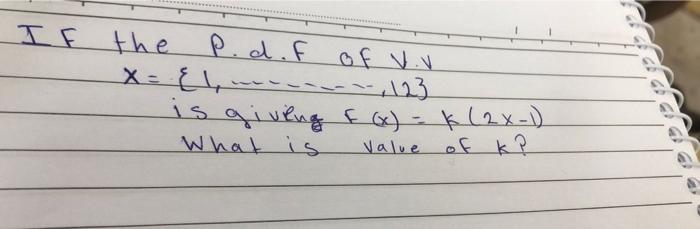 IF the P.d.F of V.V
X = {1, ---------, 12}
is giving F(x) = k(2x-1)
What is value of k?